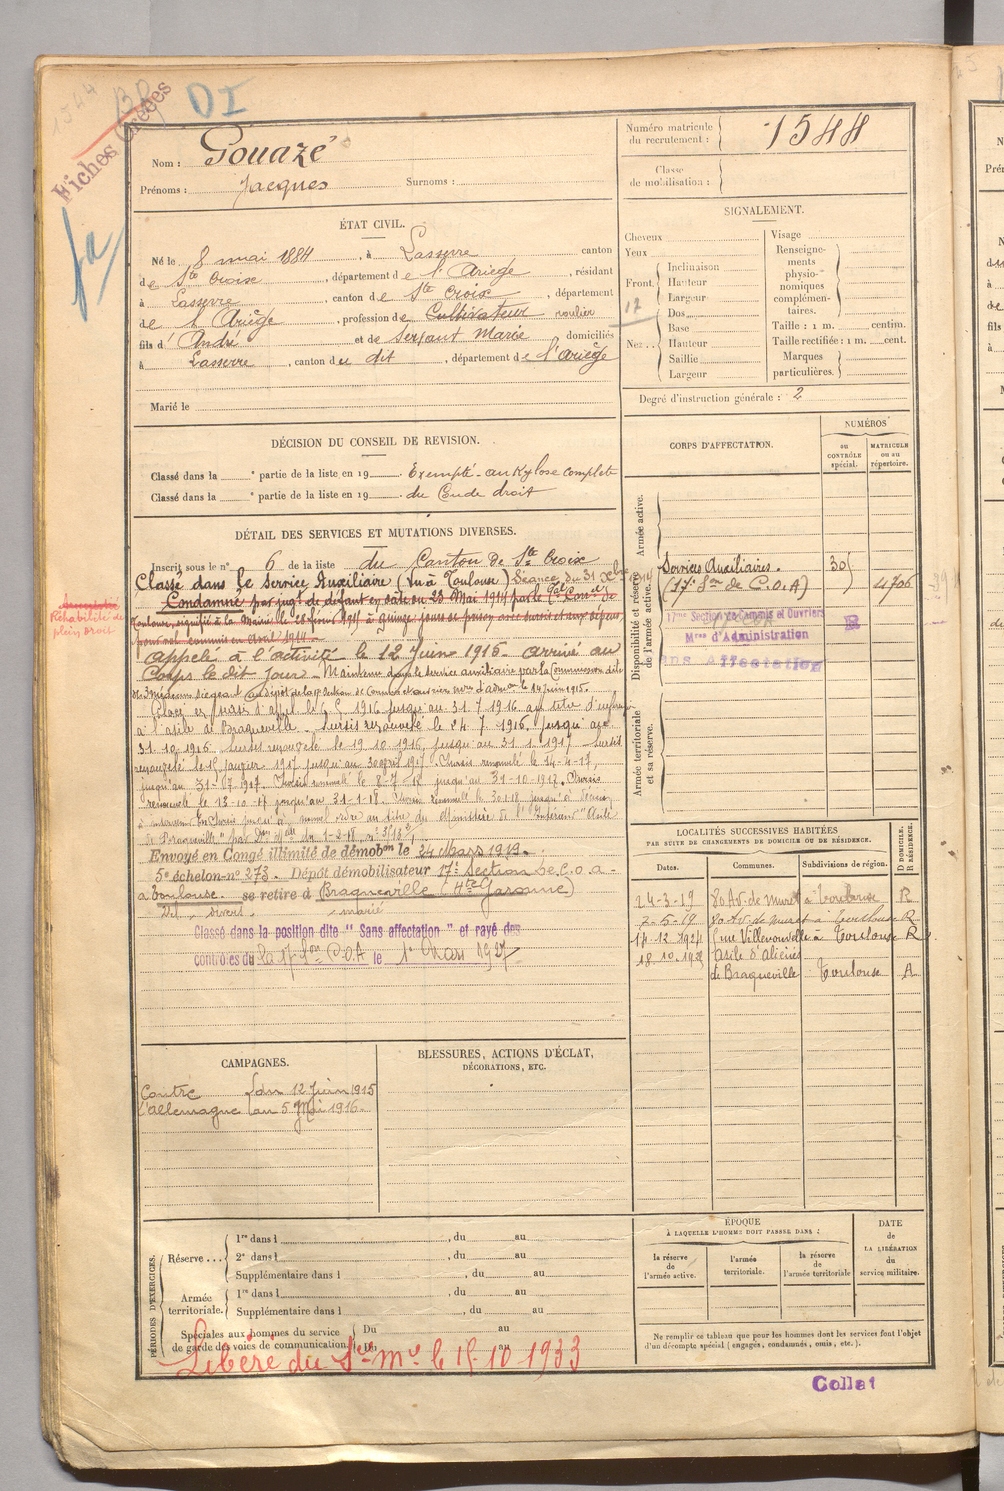 1544 BR DI
Fiches Créées
fa
Nom : Gouazé
Prénoms : Jacques Surnoms :
Numéro matricule du recrutement : 1544
Classe de mobilisation :
ÉTAT CIVIL.
Né le 8 mai 1884, à Lasserre canton
de Ste Croix, département de l'Ariège, résidant
à Lasserre, canton de Ste Croix, département
de l'Ariège, profession de Cultivateur roulier
fils d' André et de Servant Marie domiciliés
à Lasserre, canton du dit, département de l'Ariège
Marié le
SIGNALEMENT.
Cheveux
Yeux
Front. Inclinaison
Hauteur
Largeur
17
Nez.. Dos
Base
Hauteur
Saillie
Largeur
Visage
Renseignements physionomiques complémentaires.
Taille : 1 m. centim.
Taille rectifiée : 1 m. cent.
Marques particulières.
Degré d'instruction générale : 2
DÉCISION DU CONSEIL DE REVISION.
Classé dans la e partie de la liste en 19 Exempté - ankylose complète
Classé dans la e partie de la liste en 19 du Coude droit
DÉTAIL DES SERVICES ET MUTATIONS DIVERSES.
Inscrit sous le n° 6 de la liste du Canton de Ste Croix
Classé dans le Service Auxiliaire (Vu à Toulouse) Séance du 31 Xbre 1914
Condamné par jugt de défaut en date du 23 Mai 1914 par le
Toulouse, signifié à la Mairie le à quinze jours de prison avec sursis et aux dépens
pour vol commis en Avril 1914
Réhabilité de plein droit
appelé à l'activité le 12 Juin 1915 - arrivé au
Corps le dit jour - Maintenu dans le service auxiliaire par la Commission dite
de 3 médecins siégeant au dépôt de la section de Commis et ouvriers mres d'admon le 14 juin 1915.
Placé en sursis d'appel le 6 5 1916 jusqu'au 31.7.1916 au titre d'infirmier
à l'asile de Braqueville. Sursis renouvelé le 24 7 1916, jusqu'au
31.10.1916. Sursis renouvelé le 19.10.1916, jusqu'au 31.1.1917 - Sursis
renouvelé le janvier 1917 jusqu'au 30 avril 1917. Sursis renouvelé le 14-4-17,
jusqu'au 31-07-1917. Sursis renouvelé le 8-7-17 jusqu'au 31-10-1917. Sursis
renouvelé le 13-10-17 jusqu'au 31-1-18. Sursis renouvelé le 30118 jusqu'à
à nouvel ordre au titre du Ministère de l'Intérieur "Asile
de Braqueville" par du 1-2-18
Envoyé en Congé illimité de démobon le 24 Mars 1919.
5e échelon - no 273. Dépôt démobilisateur 17e Section de C.O.A -
à Toulouse. se retire à Braqueville (Hte Garonne)
marié
Classé dans la position dite " Sans affectation " et rayé des
contrôles du la 17e Son C.O.A le 1er Mars 1927
CORPS D'AFFECTATION.
NUMÉROS
au CONTRÔLE spécial.
MATRICULE ou au répertoire.
Armée active.
Disponibilité et réserve de l'armée active.
Services Auxiliaires. 30
(17e Son de C.O.A) 4706
17me Section de Commis et Ouvriers
Mres d'Administration
SANS AFFECTATION
Armée territoriale et sa réserve.
LOCALITÉS SUCCESSIVES HABITÉES
PAR SUITE DE CHANGEMENTS DE DOMICILE OU DE RÉSIDENCE.
Dates. Communes. Subdivisions de région. D DOMICILE. R RÉSIDENCE.
24-3-19 80 Av. de muret à Toulouse R
2-5-19 80 Av. de muret à Toulouse R
17-12.1924 rue Villenouvelle à Toulouse R
18.10.1928 Asile d'Aliénés
de Braqueville Toulouse A
CAMPAGNES.
Contre du 12 Juin 1915
l'Allemagne au 5 Mai 1916
BLESSURES, ACTIONS D'ÉCLAT,
DÉCORATIONS, ETC.
PÉRIODES D'EXERCICES.
Réserve... 1re dans l , du au
2e dans l , du au
Supplémentaire dans l , du au
Armée territoriale. 1re dans l , du au
Supplémentaire dans l , du au
Spéciales aux hommes du service de garde des voies de communication. Du au
Du au
Libéré du Sce Mre le 15.10 1933
ÉPOQUE
À LAQUELLE L'HOMME DOIT PASSER DANS :
la réserve de l'armée active.
l'armée territoriale.
la réserve de l'armée territoriale
DATE de LA LIBÉRATION du service militaire.
Ne remplir ce tableau que pour les hommes dont les services font l'objet
d'un décompte spécial (engagés, condamnés, omis, etc.).
Collat